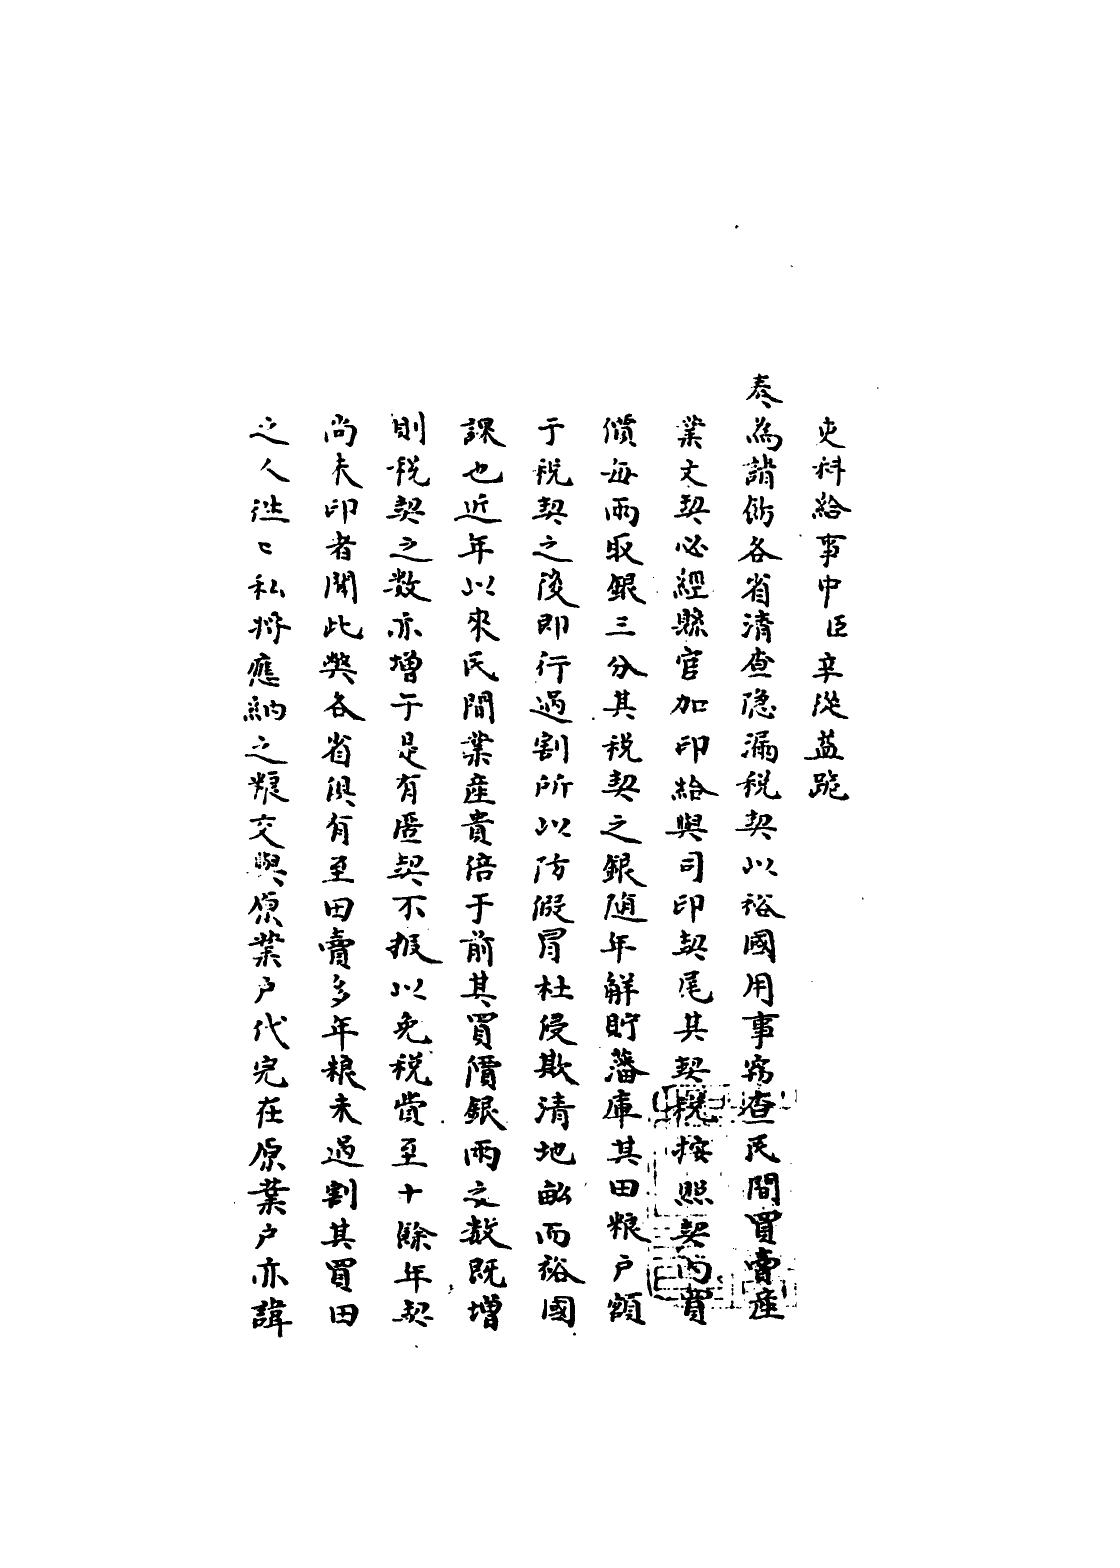 吏科給事中臣辛從益跪
奏為請飭各省清查隐漏税契以裕國用事窃查民間買賣産
業文契必經縣官加印給與司印契尾其契税按照契内買
價每兩取銀三分其税契之銀随年解貯藩庫其田粮户額
于税契之後即行過割所以防假冒杜侵欺清地畝而裕國
課也近年以來民間業産貴倍于前其買價銀兩之数既增
則税契之数亦增于是有匿契不报以免税赀至十餘年契
尚未印者聞此獘各省俱有至田賣多年粮未過割其買田
之人往〻私将應納之粮交與原業户代完在原業户亦諱